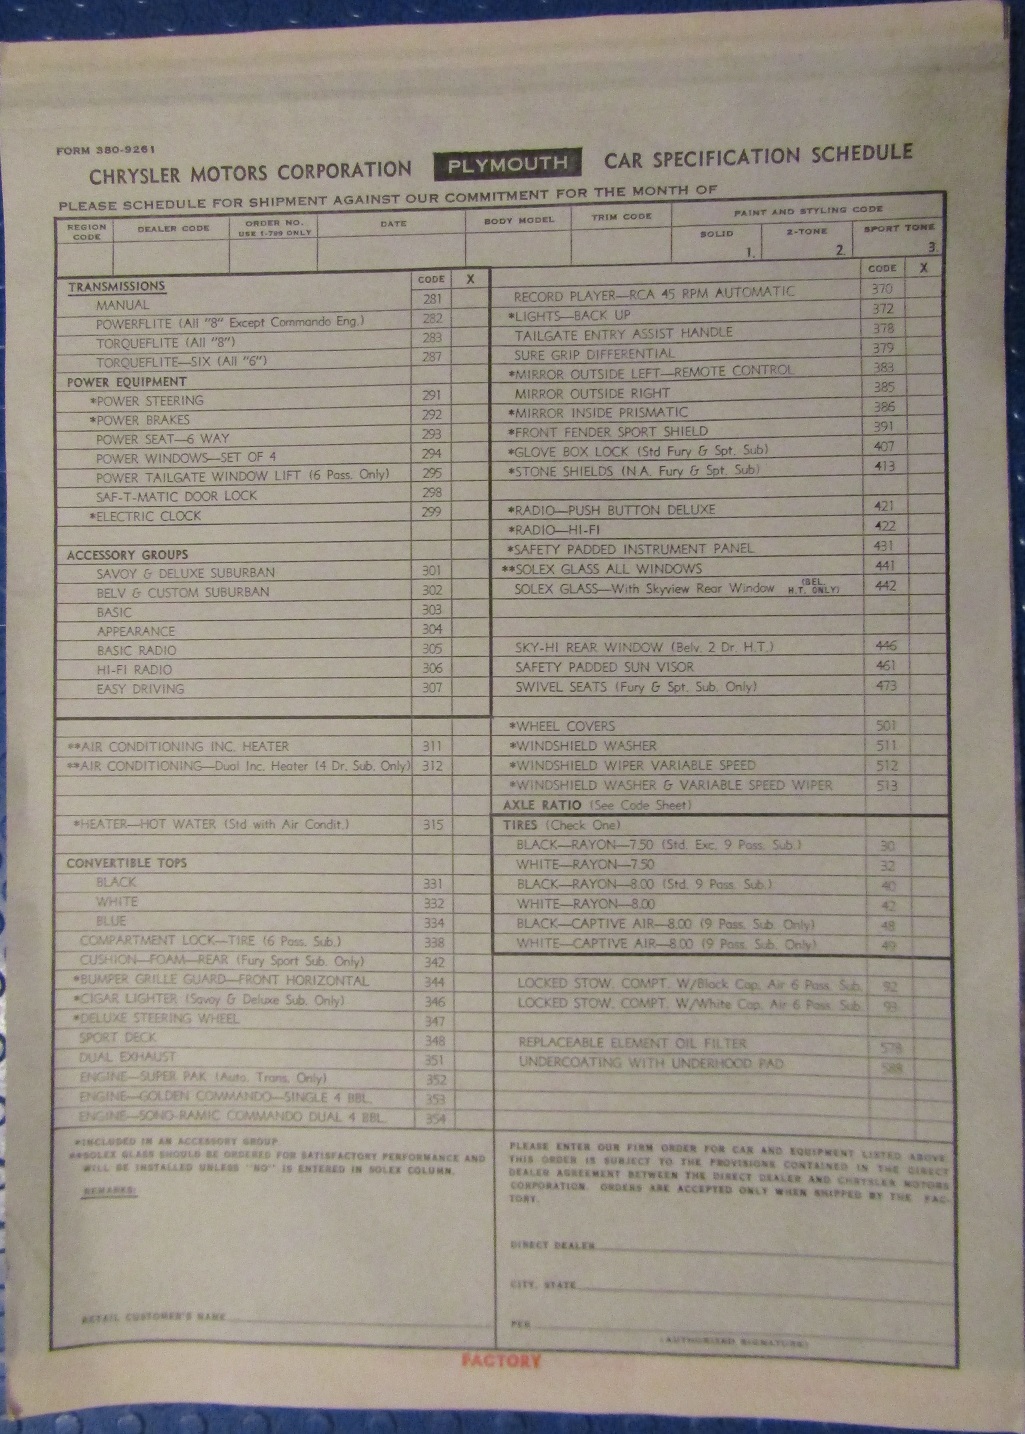 FORM 380-9261
CHRYSLER MOTORS CORPORATION PLYMOUTH CAR SPECIFICATION SCHEDULE
PLEASE SCHEDULE FOR SHIPMENT AGAINST OUR COMMITMENT FOR THE MONTH OF
REGION CODE
DEALER CODE
ORDER NO.
USE 1-799 ONLY
DATE
BODY MODEL
TRIM CODE
PAINT AND STYLING CODE
SOLID 1.
2-TONE 2.
SPORT TONE 3.
TRANSMISSIONS CODE X
MANUAL 281
POWERFLITE (All "8" Except Commando Eng.) 282
TORQUEFLITE (All "8") 283
TORQUEFLITE—SIX (All "6") 287
POWER EQUIPMENT
*POWER STEERING 291
*POWER BRAKES 292
POWER SEAT—6 WAY 293
POWER WINDOWS—SET OF 4 294
POWER TAILGATE WINDOW LIFT (6 Pass. Only) 295
SAF-T-MATIC DOOR LOCK 298
*ELECTRIC CLOCK 299
ACCESSORY GROUPS
SAVOY & DELUXE SUBURBAN 301
BELV & CUSTOM SUBURBAN 302
BASIC 303
APPEARANCE 304
BASIC RADIO 305
HI-FI RADIO 306
EASY DRIVING 307
**AIR CONDITIONING INC. HEATER 311
**AIR CONDITIONING—Dual Inc. Heater (4 Dr. Sub. Only) 312
*HEATER—HOT WATER (Std with Air Condit.) 315
CONVERTIBLE TOPS
BLACK 331
WHITE 332
BLUE 334
COMPARTMENT LOCK—TIRE (6 Pass. Sub.) 338
CUSHION—FOAM—REAR (Fury Sport Sub. Only) 342
*BUMPER GRILLE GUARD—FRONT HORIZONTAL 344
*CIGAR LIGHTER (Savoy & Deluxe Sub. Only) 346
*DELUXE STEERING WHEEL 347
SPORT DECK 348
DUAL EXHAUST 351
ENGINE—SUPER PAK (Auto. Trans. Only) 352
ENGINE—GOLDEN COMMANDO—SINGLE 4 BBL. 353
ENGINE—SONO-RAMIC COMMANDO DUAL 4 BBL. 354
CODE X
RECORD PLAYER—RCA 45 RPM AUTOMATIC 370
*LIGHTS—BACK UP 372
TAILGATE ENTRY ASSIST HANDLE 378
SURE GRIP DIFFERENTIAL 379
*MIRROR OUTSIDE LEFT—REMOTE CONTROL 383
MIRROR OUTSIDE RIGHT 385
*MIRROR INSIDE PRISMATIC 386
*FRONT FENDER SPORT SHIELD 391
*GLOVE BOX LOCK (Std Fury & Spt. Sub) 407
*STONE SHIELDS (N.A. Fury & Spt. Sub) 413
*RADIO—PUSH BUTTON DELUXE 421
*RADIO—HI-FI 422
*SAFETY PADDED INSTRUMENT PANEL 431
**SOLEX GLASS ALL WINDOWS 441
SOLEX GLASS—With Skyview Rear Window (BEL. H.T. ONLY) 442
SKY-HI REAR WINDOW (Belv. 2 Dr. H.T.) 446
SAFETY PADDED SUN VISOR 461
SWIVEL SEATS (Fury & Spt. Sub. Only) 473
*WHEEL COVERS 501
*WINDSHIELD WASHER 511
*WINDSHIELD WIPER VARIABLE SPEED 512
*WINDSHIELD WASHER & VARIABLE SPEED WIPER 513
AXLE RATIO (See Code Sheet)
TIRES (Check One)
BLACK—RAYON—7.50 (Std. Exc. 9 Pass. Sub.) 30
WHITE—RAYON—7.50 32
BLACK—RAYON—8.00 (Std. 9 Pass. Sub.) 40
WHITE—RAYON—8.00 42
BLACK—CAPTIVE AIR—8.00 (9 Pass. Sub Only) 48
WHITE—CAPTIVE AIR—8.00 (9 Pass. Sub. Only) 49
LOCKED STOW. COMPT. W/Black Cap. Air 6 Pass. Sub. 92
LOCKED STOW. COMPT. W/White Cap. Air 6 Pass. Sub. 93
REPLACEABLE ELEMENT OIL FILTER 578
UNDERCOATING WITH UNDERHOOD PAD 588
*INCLUDED IN AN ACCESSORY GROUP
**SOLEX GLASS SHOULD BE ORDERED FOR SATISFACTORY PERFORMANCE AND
WILL BE INSTALLED UNLESS "NO" IS ENTERED IN SOLEX COLUMN.
REMARKS:
RETAIL CUSTOMER'S NAME
PLEASE ENTER OUR FIRM ORDER FOR CAR AND EQUIPMENT LISTED ABOVE
THIS ORDER IS SUBJECT TO THE PROVISIONS CONTAINED IN THE DIRECT
DEALER AGREEMENT BETWEEN THE DIRECT DEALER AND CHRYSLER MOTORS
CORPORATION. ORDERS ARE ACCEPTED ONLY WHEN SHIPPED BY THE FAC-
TORY.
DIRECT DEALER
CITY, STATE
PER
(AUTHORIZED SIGNATURE)
FACTORY